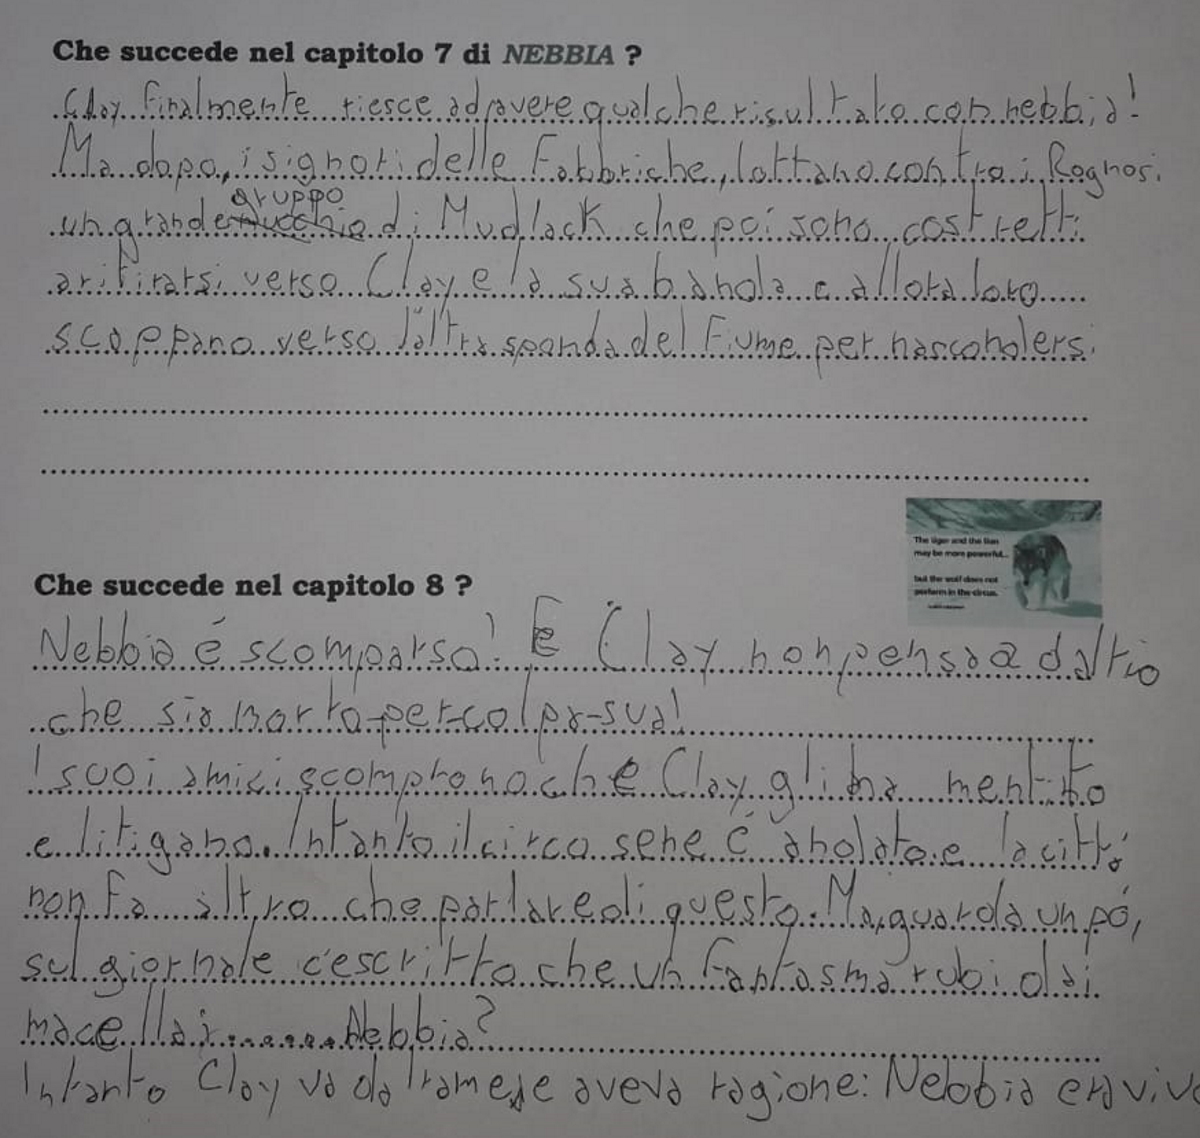 Che succede nel capitolo 7 di NEBBIA ?
Clay finalmente riesce ad avere qualche risultato con nebbia!
Ma dopo, i signori delle Fabbriche, lottano contro i Rognosi
gruppo
un grande mucchio di Mudlack che poi sono costretti
a ritirarsi verso Clay e la sua banda e allora loro
scappano verso l'altra sponda del fiume per nascondersi
Che succede nel capitolo 8 ?
The tiger and the lion
may be more powerful...
but the wolf does not
perform in the circus.
Nebbia é scomparsa! E Clay non pensa ad altro
che sia morta per colpa sua!
I suoi amici scomprono che Clay gli ha mentito
e litigano. Intanto il circo sene é andato e la cittá
non fa altro che parlare di questo. Ma, guarda un pó,
sul giornale c'escritto che un fantasma rubi dai
macellai........Nebbia?
Intanto Clay va da Irame, e aveva ragione: Nebbia era viva